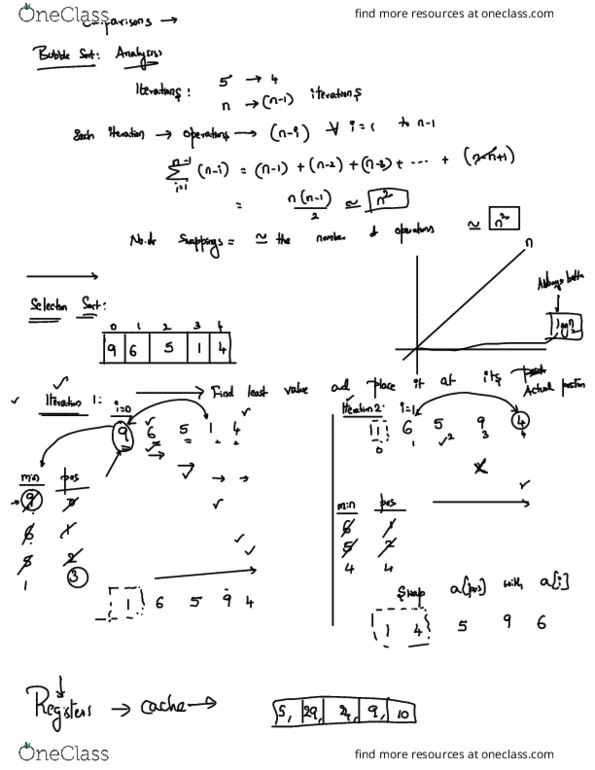 OneClass
find more resources at oneclass.com
Comparisons →
Bubble Sort: Analysis:
Iterations: 5 → 4
n → (n-1) iterations
Each iteration → operations → (n-i) ∀ i=1 to n-1
n-1
∑ (n-i) = (n-1) + (n-2) + (n-3) + ... + (n-n+1)
i=1
= n(n-1)/2 ≃ n²
No. of Swappings = ≃ the number of operations ≃ n²
n
Always better
Selection Sort:
0 1 2 3 4
9 6 5 1 4
Iteration 1: → Find least value and place it at its
Actual position
i=0
9 6 5 1 4
Iteration 2: i=1
1 6 5 9 4
0 1 2 3 4
min pos
9 0
6 1
5 2
1 3
1 6 5 9 4
min pos
6 1
5 2
4 4
Swap a[pos] with a[i]
1 4 5 9 6
Registers → cache →
5, 29, 24, 9, 10
OneClass
find more resources at oneclass.com